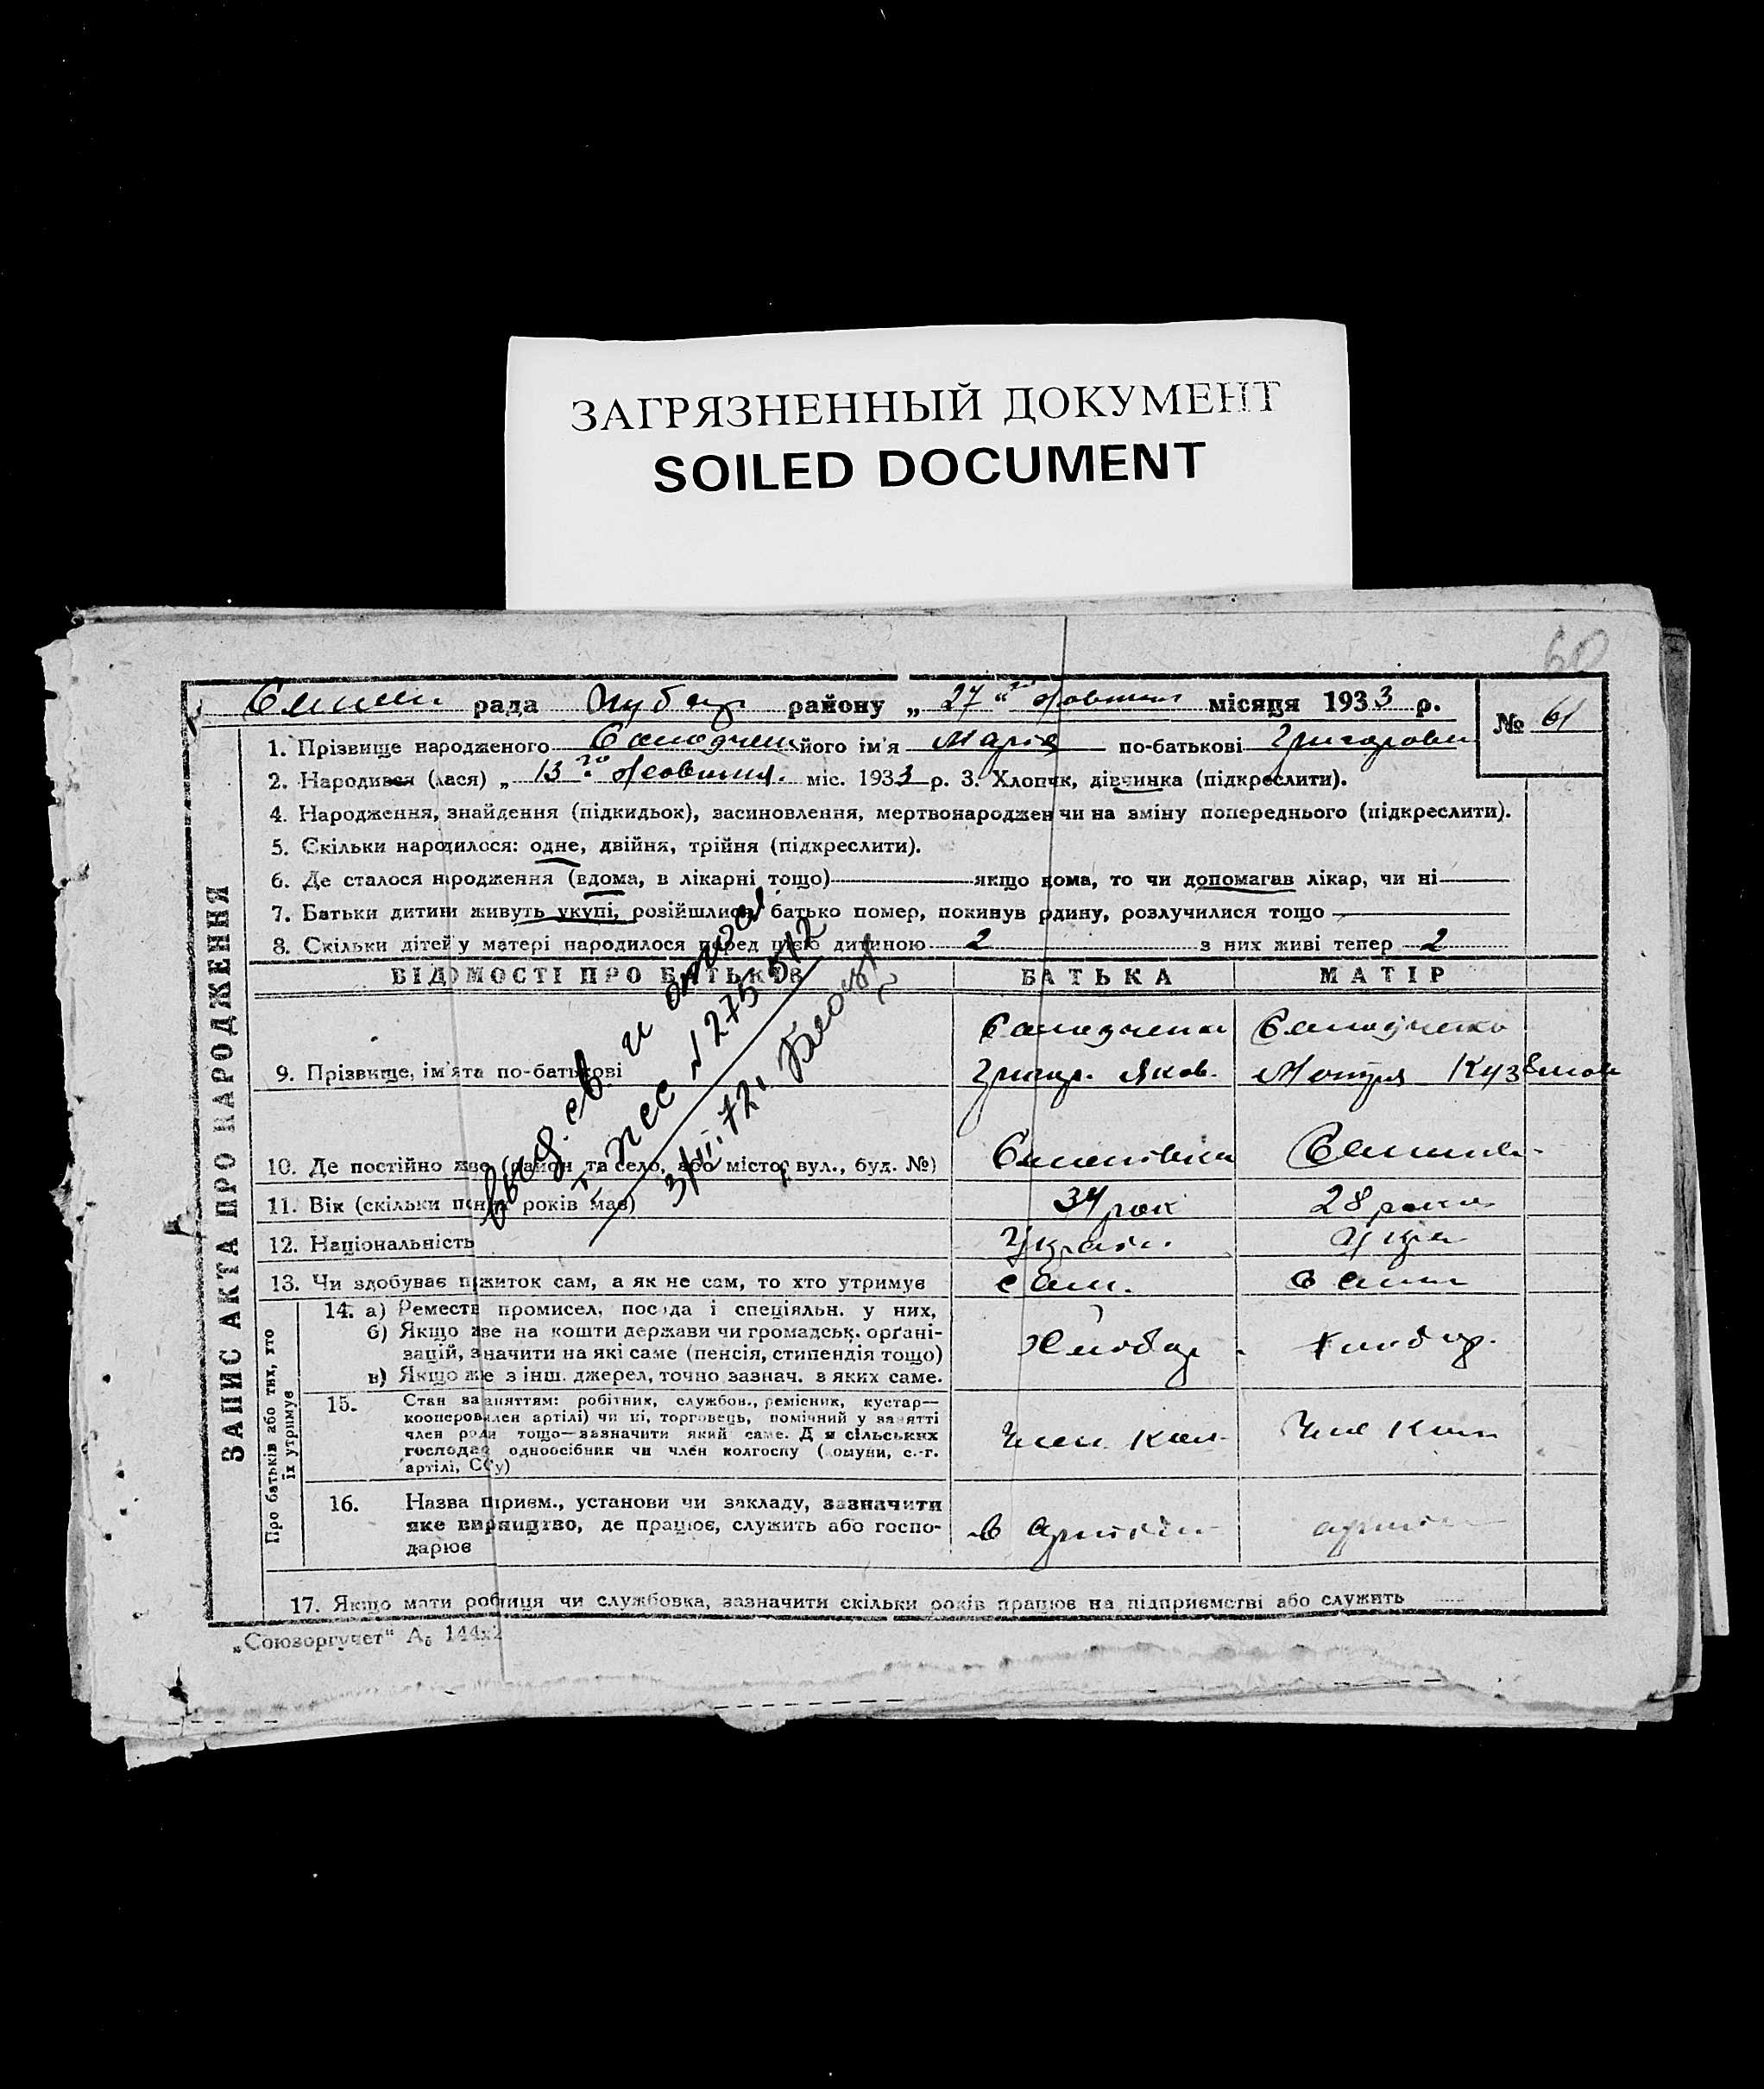 ЗАГРЯЗНЕННЫЙ ДОКУМЕНТ
SOILED DOCUMENT
60
рада району „ 27 “ місяця 1933 р.
№ 61
1. Прізвище народженого його ім'я Марія по-батькові
2. Народився (лася) „ 13 го Жовтня міс. 1933 р. 3. Хлопчик, дівчинка (підкреслити).
4. Народження, знайдення (підкидьок), засиновлення, мертвонароджен чи на зміну попереднього (підкреслити).
5. Скільки народилося: одне, двійня, трійня (підкреслити).
6. Де сталося народження (вдома, в лікарні тощо) якщо вдома, то чи допомагав лікар, чи ні
7. Батьки дитини живуть укупі, розійшлися, батько помер, покинув родину, розлучилися тощо
8. Скільки дітей у матері народилося перед цією дитиною 2 з них живі тепер 2
ВІДОМОСТІ ПРО БАТЬКІВ БАТЬКА МАТІР
9. Прізвище, ім'я та по-батькові Яков. Мотря
10. Де постійно живе (район та село, або місто, вул., буд. №)
11. Вік (скільки повних років має) 34 рок 28 роки
12. Національність Україн.
13. Чи здобуває пожиток сам, а як не сам, то хто утримує сам. сама
14. а) Реместв промисел, посада і спеціяльн. у них,
б) Якщо живе на кошти держави чи громадськ. орґані-
зацій, значити на які саме (пенсія, стипендія тощо)
в) Якщо живе з інш. джерел, точно зазнач. з яких саме.
Хлібор Хлібор.
15. Стан за заняттям: робітник, службов., ремісник, кустар—
кооперов. (член артілі) чи ні, торговець, помічний у занятті
член роди тощо—зазначити який саме. Для сільських
господар одноосібник чи член колгоспу (комуни, с.-г.
артілі, СОЗу)
Член Кол. Член Кол
16. Назва підприєм., установи чи закладу, зазначити
яке виробництво, де працює, служить або госпо-
дарює
в артілі артілі
17. Якщо мати робітниця чи службовка, зазначити скільки років працює на підприємстві або служить
„Союзоргучет“ А₅ 144х2
ЗАПИС АКТА ПРО НАРОДЖЕННЯ
Про батьків або тих, хто
їх утримує